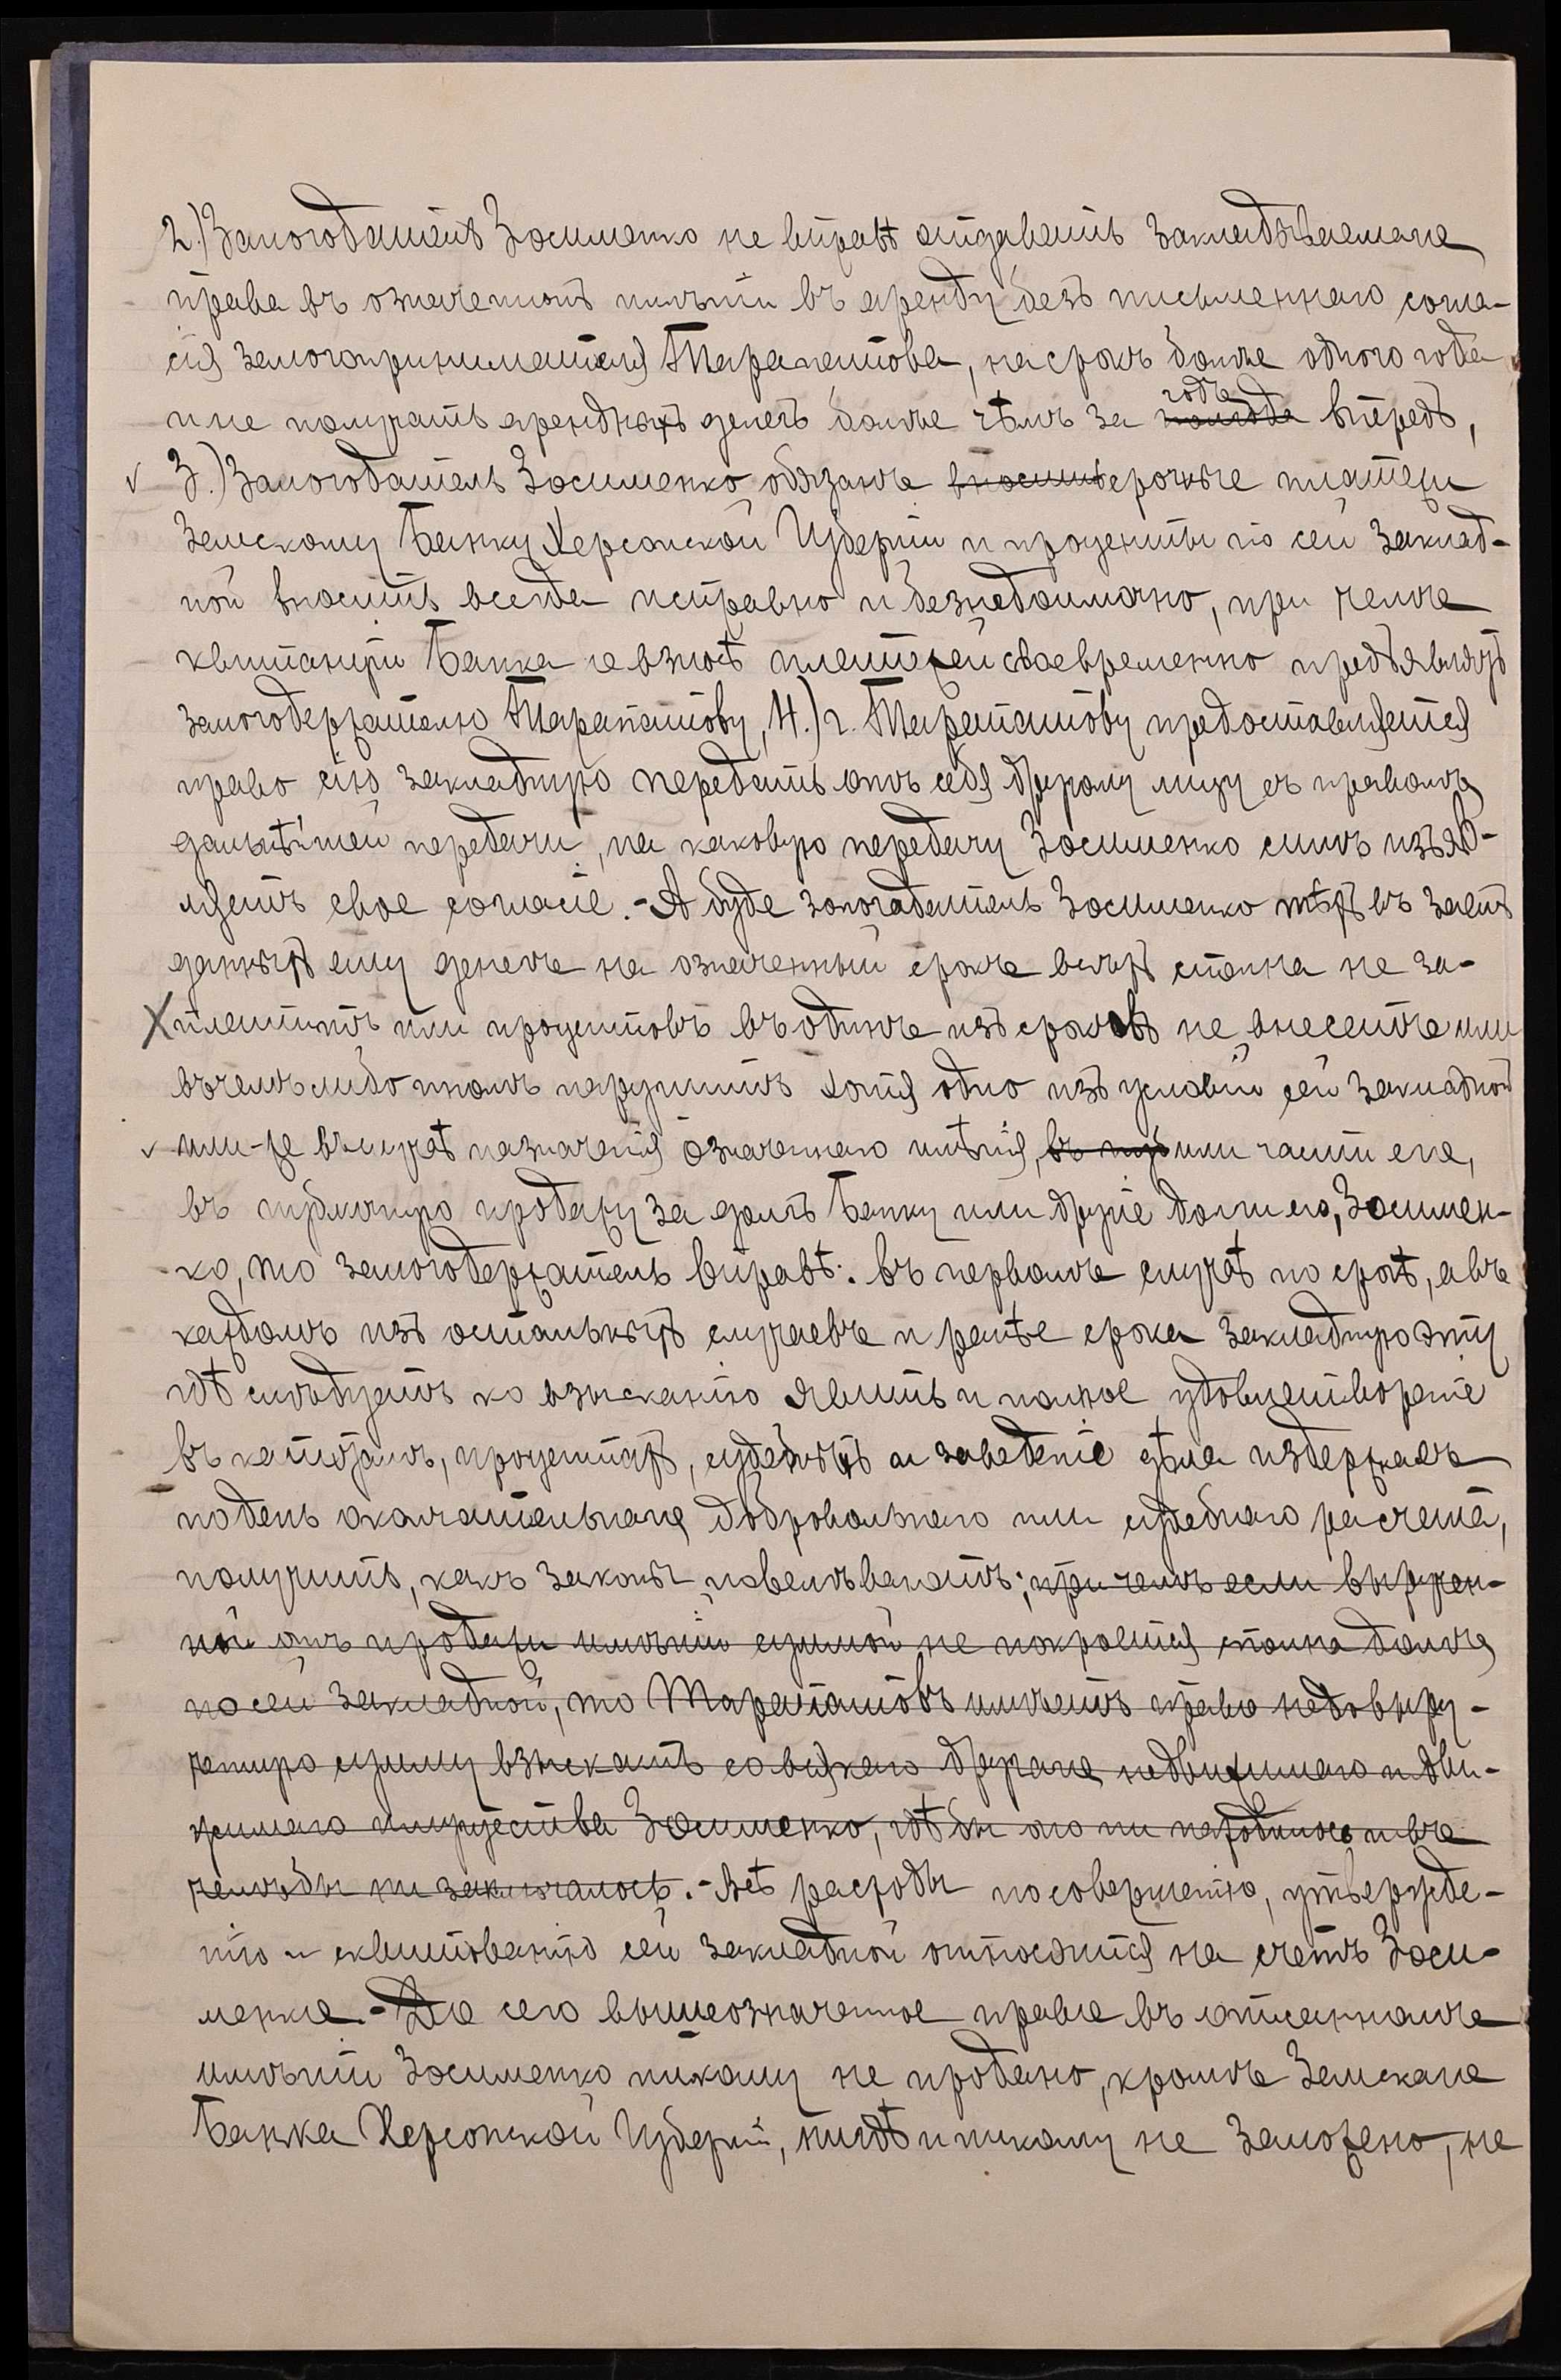 2.) Залогодатель Зосименко не вправѣ отдавать закладываемаго
права въ означенномъ имѣніи въ аренду безъ письменнаго согла-
сія залогопринимателя Тарапатова, на срокъ болѣе одного года
и не получать арендныхъ денегъ болѣе чѣмъ за полгода годъ впередъ,
3.) Залогодатель Зосименко обязанъ вносить срочные платежи
Земскому Банку Херсонской Губерніи и проценты по сей заклад-
ной вносить всегда исправно и безнедоимочно, при чемъ
квитанціи Банка о взносѣ платежей своевременно предъявлять
залогодержателю Тарапатову, 4.) г. Тарапатову предоставляется
право сію закладную передать отъ себя другому лицу съ правомъ
дальнѣйшей передачи, на каковую передачу Зосименко симъ изъяв-
ляетъ свое согласіе. - А буде залогодатель Зосименко тѣхъ въ заемъ
данныхъ ему денегъ на означенный срокъ всѣхъ сполна не за-
платитъ или процентовъ въ одинъ изъ сроковъ не внесетъ или
въ чемъ либо иномъ нарушитъ хотя одно изъ условій сей закладной
или-же въ случаѣ назначенія означеннаго имѣнія, въ пуб или части его,
въ публичную продажу за долгъ Банку или другіе долги его, Зосимен-
ко, то залогодержатель вправѣ: въ первомъ случаѣ по срокѣ, а въ
каждомъ изъ остальныхъ случаевъ и ранѣе срока закладную эту
гдѣ слѣдуетъ ко взысканію явить и полное удовлетвореніе
въ капиталѣ, процентахъ, судебныхъ и за веденіе дѣла издержкахъ
по день окончательнаго добровольнаго или судебнаго расчета,
получить, какъ законы повелѣваютъ; при чемъ если выручен-
ной отъ продажи имѣнія суммой не покроется сполна долгъ
по сей закладной, то Тарапатовъ имѣетъ право недовыру-
ченную сумму взыскать со всякаго другаго недвижимаго и дви-
жимаго имущества Зосименко, гдѣ бы оно ни находилось и въ
чемъ бы ни заключалось. - Всѣ расходы по совершенію, утвержде-
нію и сквитованію сей закладной относятся на счетъ Зоси-
менко. - До сего вышеозначенное право въ описанномъ
имѣніи Зосименко никому не продано, кромѣ Земскаго
Банка Херсонской Губерніи, нигдѣ и никому не заложено, не